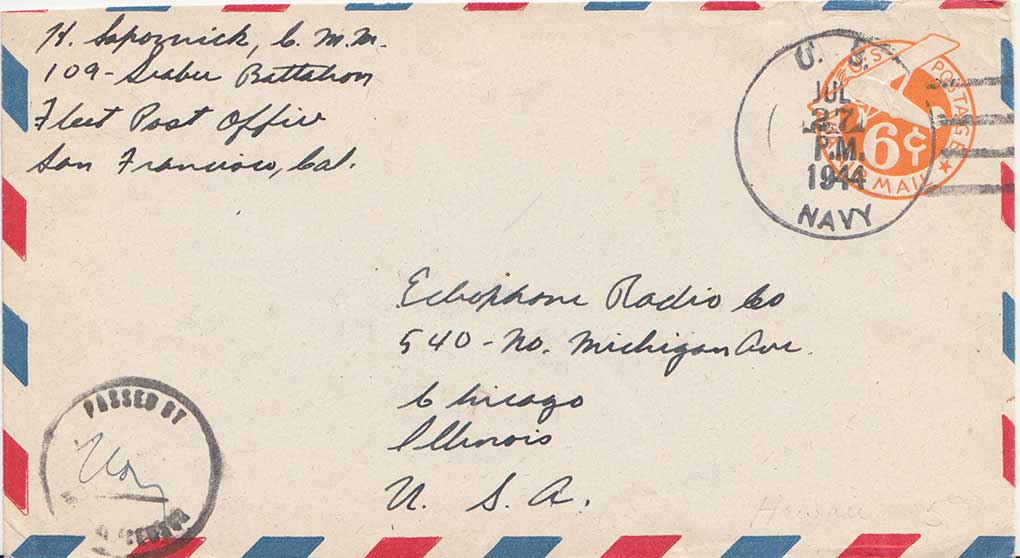 H. Sapoznick, C.M.M.
109 - Seabee Battalion
Fleet Post Office
San Francisco, Cal.
U.S. POSTAGE
6¢
AIR MAIL
U. S.
JUL
27
P.M.
1944
NAVY
Echophone Radio Co
540 - No. Michigan Ave.
Chicago
Illinois
U. S. A.
PASSED BY
CENSOR
Hawaii